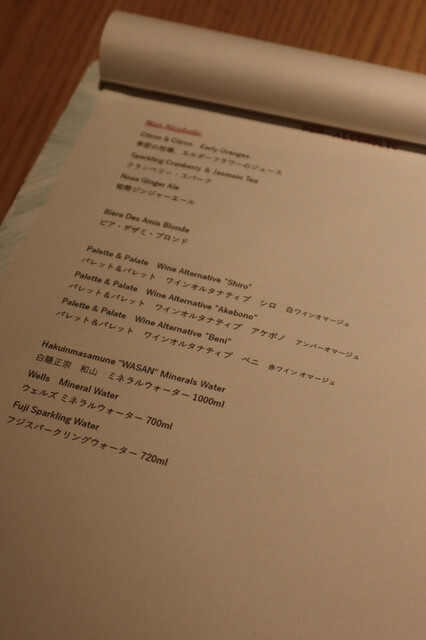 Non Alcoholic
Citron & Citron Early Oranges
季節の柑橘、エルダーフラワーのジュース
Sparkling Cranberry & Jasmain Tea
クランベリー・スパーク
Nose Ginger Ale
能勢ジンジャーエール
Biere Des Amis Blonde
ビア・デザミ・ブロンド
Palette & Palate Wine Alternative "Shiro"
パレット＆パレット ワインオルタナティブ シロ 白ワインオマージュ
Palette & Palate Wine Alternative "Akebono"
パレット＆パレット ワインオルタナティブ アケボノ アンバーオマージュ
Palette & Palate Wine Alternative "Beni"
パレット＆パレット ワインオルタナティブ ベニ 赤ワインオマージュ
Hakuinmasamune "WASAN" Minerals Water
白隠正宗 和山 ミネラルウォーター 1000ml
Wells Mineral Water
ウェルズ ミネラルウォーター 700ml
Fuji Sparkling Water
フジスパークリングウォーター 720ml